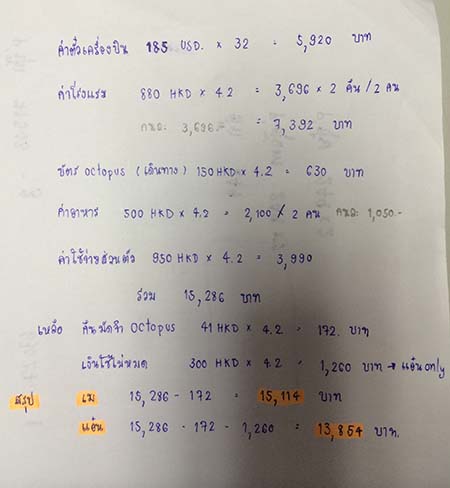 ค่าตั๋วเครื่องบิน 185 USD. × 32 = 5,920 บาท
ค่าโรงแรม 880 HKD × 4.2 = 3,696 × 2 คืน / 2 คน
คนละ 3,696.- = 7,392 บาท
บัตร octopus (เดินทาง) 150 HKD × 4.2 = 630 บาท
ค่าอาหาร 500 HKD × 4.2 = 2,100 / 2 คน คนละ 1,050.-
ค่าใช้จ่ายส่วนตัว 950 HKD × 4.2 = 3,990
รวม 15,286 บาท
เหลือ คืนมัดจำ octopus 41 HKD × 4.2 = 172. บาท
เงินใช้ไม่หมด 300 HKD × 4.2 = 1,260 บาท → แอ้น only
สรุป เม 15,286 - 172 = 15,114 บาท
แอ้น 15,286 - 172 - 1,260 = 13,854 บาท.